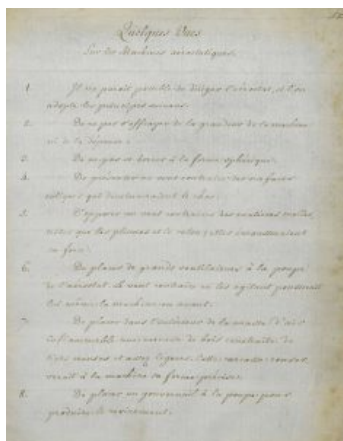 Quelques Vues
Sur les Machines aérostatiques.
1. Il me paroit possible de diriger l'aérostat, si l'on
adopte les principes suivans.
2. De ne pas s'effrayer de la grandeur de la machine
ni de la dépense.
3. De ne pas se borner à la forme sphérique.
4. De présenter au vent contraire des surfaces
obliques qui
5. D'opposer au vent contraire des matières molles,
telles que les plumes et le coton; elles
sa force.
6. De placer de grands ventilateurs à la poupe
de l'aérostat. Le vent contraire en les agitant
lui même la machine en avant.
7. De placer dans l'intérieur de la masse d'air
inflammable une carcasse de bois construite de
pièces minces et assez légères. Cette carcasse
à la machine sa forme précise.
8. De placer un gouvernail à la poupe pour
produire le mouvement.